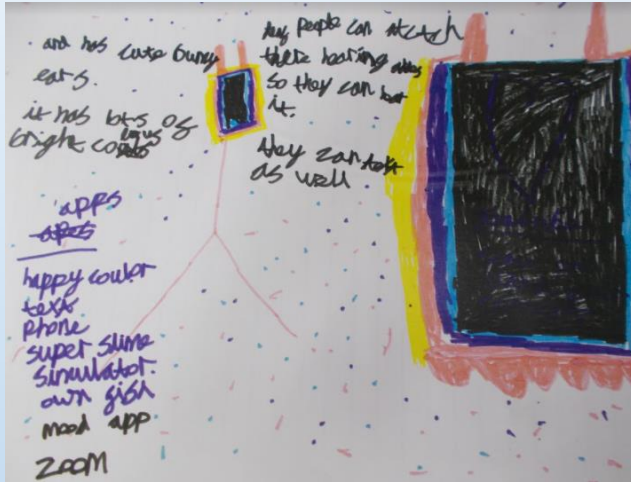 and has cute buny
ears.
it has lots of
bright
people can
there hearing
so they can
it.
they can text
as well
apps
happy couler
text
phone
super slime
simulator.
own gish
mood app
zoom